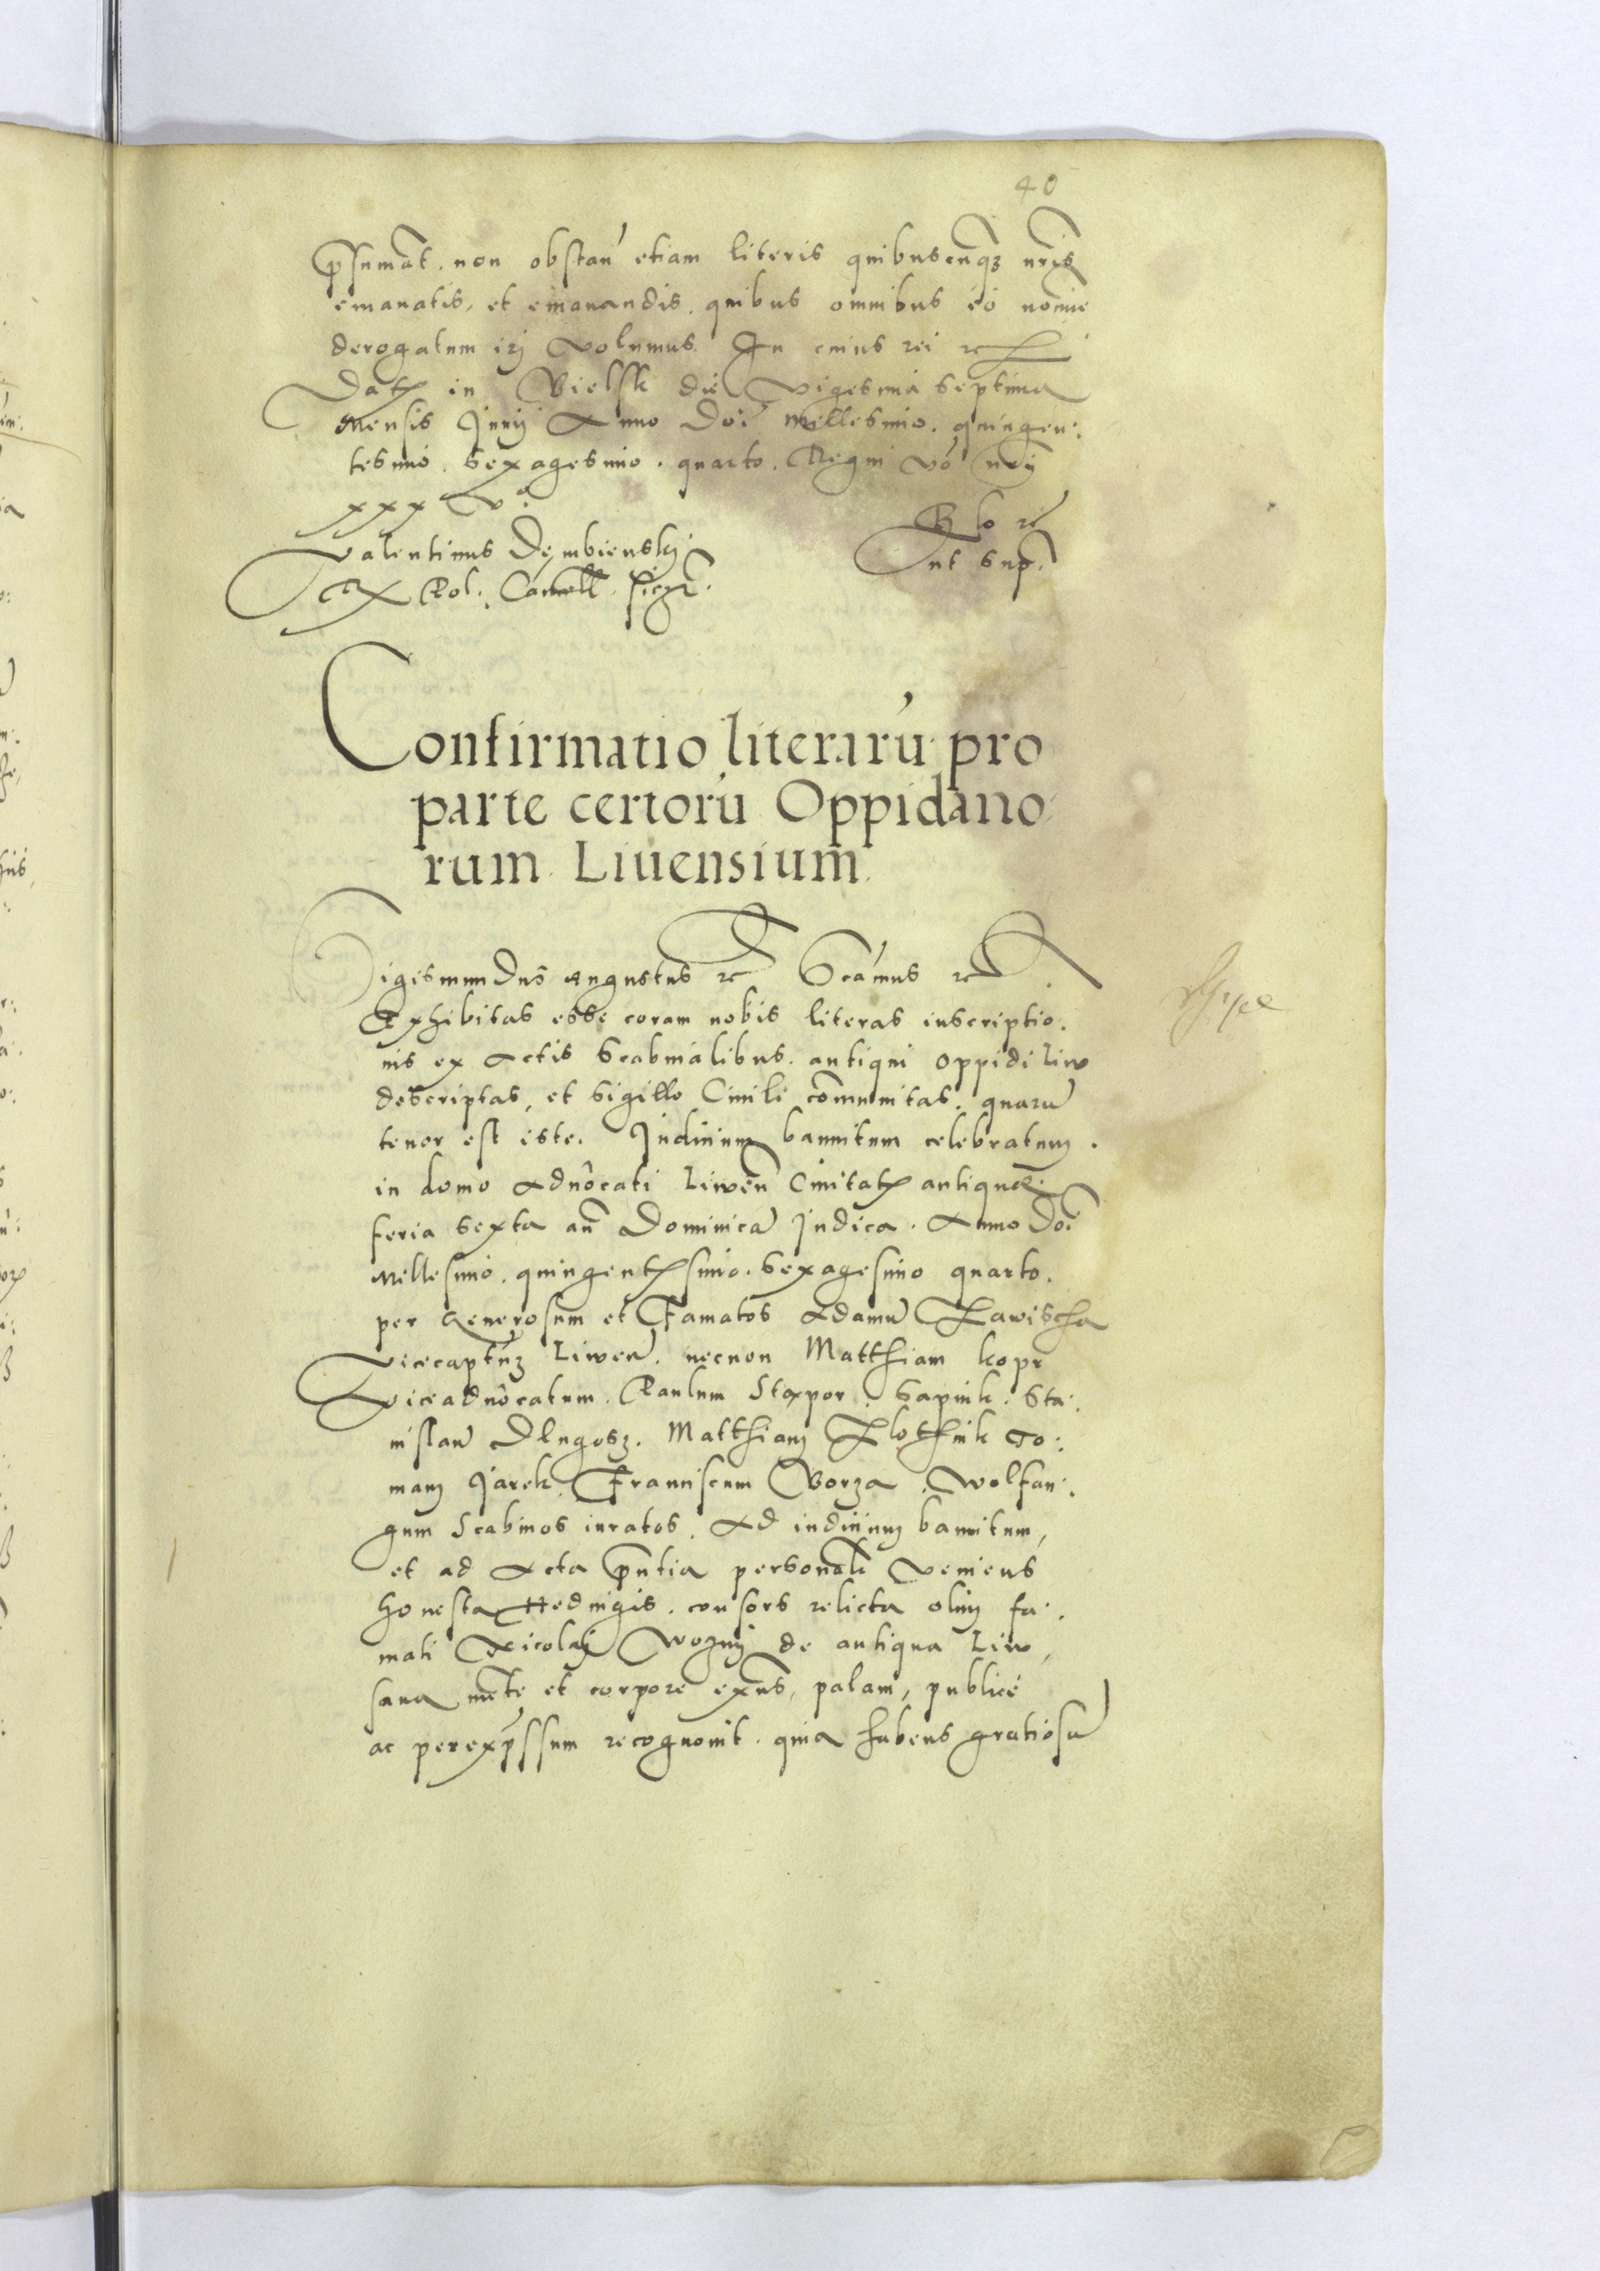 40
p̄sumāt. non obstan̄ etiam literis quibuscūq3 nr̄is
emanatis, et emanandis. quibus omnibus eo nomīe
derogatum irj volumus. In cuius rei etc
Dat. in Bielsk die vigesima septima
Mensis Junij Anno Doī Millesimo. quingen:
tesimo. sexagesimo. quarto. Regni vō nr̄ij
xxxv°.
Valentinus Dembienskj
R. Pol. Cancell.
ut sup̄.
Confirmatio literarū pro
parte certorū Oppidano
rum Liuensium.
Sigismundus Augustus etc Scāmus etc
Exhibitas esse coram nobis literas inscriptio.
nis ex Actis Scabinalibus. antiqui oppidi Liw
descriptas, et sigillo Ciuili cōmunitas. quarū
tenor est iste. Judicium bannitum celebratum.
in domo Aduocati Liwen̄ Ciuitat. antiquæ.
feria sexta an̄ Dominicā Judica. Anno Doī
Millesimo. quingentesimo. sexagesimo quarto.
per Generosum et Famatos Adamū Zawischa
Vicecaptūʒ Liwen̄. necnon Matthiam kopr
Viceaduocatum. Paulum Stąpor. Sapiuk. Sta:
nislaū Dlugosz. Matthiam To:
mam Jarek. Franciscum Borza. Wolfan:
gum Scabinos iuratos. Ad iudicium bannitum,
et ad Acta p̄ntia personalr̄ veniens
honesta Heduigis. consors relicta olim fa.
mati Nicolaj Wozny de antiqua Liw,
sana mēte et corpore exn̄s, palam, publice
ac perexp̄ssum recognouit. quia habens gratiosū